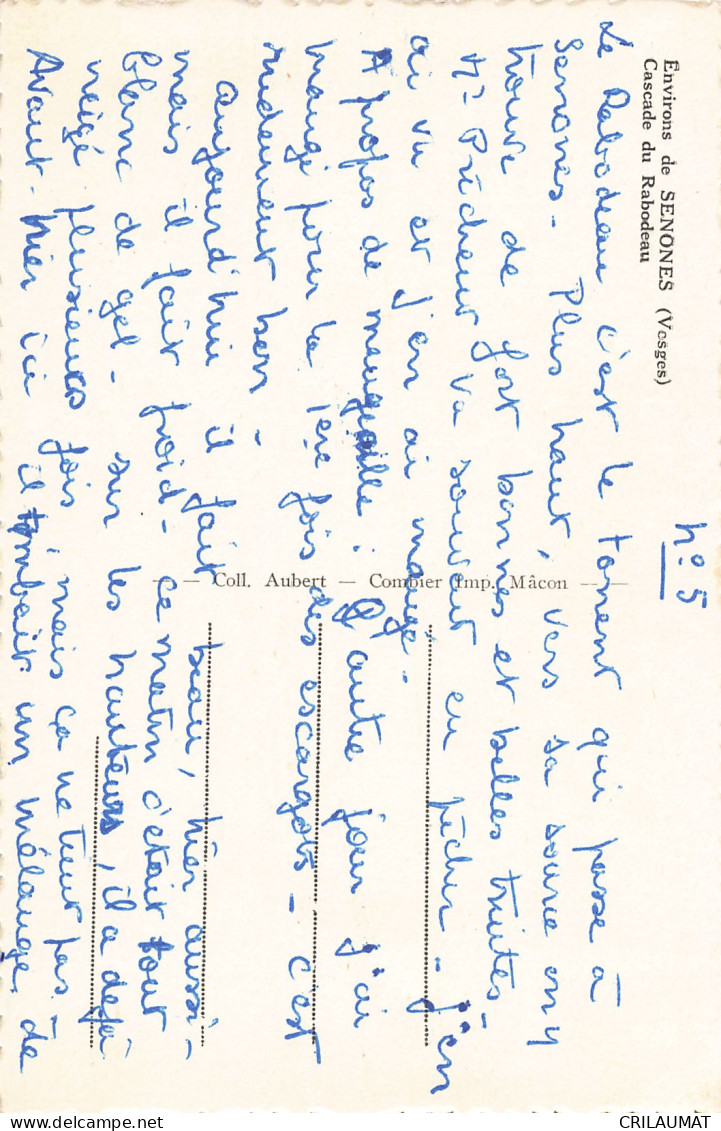 Environs de SENONES (Vosges)
Cascade du Rabodeau
n° 5
Le Rabodeau c'est le torrent qui passe à
Senones - Plus haut, vers sa source on y
trouve de fort bonnes et belles truites -
Mr Prêcheur va souvent en pêcher - J'en
ai vu et j'en ai mangé -
A propos de mangeaille : l'autre jour j'ai
mangé pour la 1ère fois des escargots - C'est
rudement bon -
Aujourd'hui il fait beau, hier aussi -
mais il fait froid - Ce matin c'était tout
blanc de gel - Sur les hauteurs, il a déjà
neigé plusieurs fois, mais ça ne tient pas -
Avant-hier ici il tombait un mélange de
— Coll. Aubert — Combier Imp. Mâcon —
CRILAUMAT